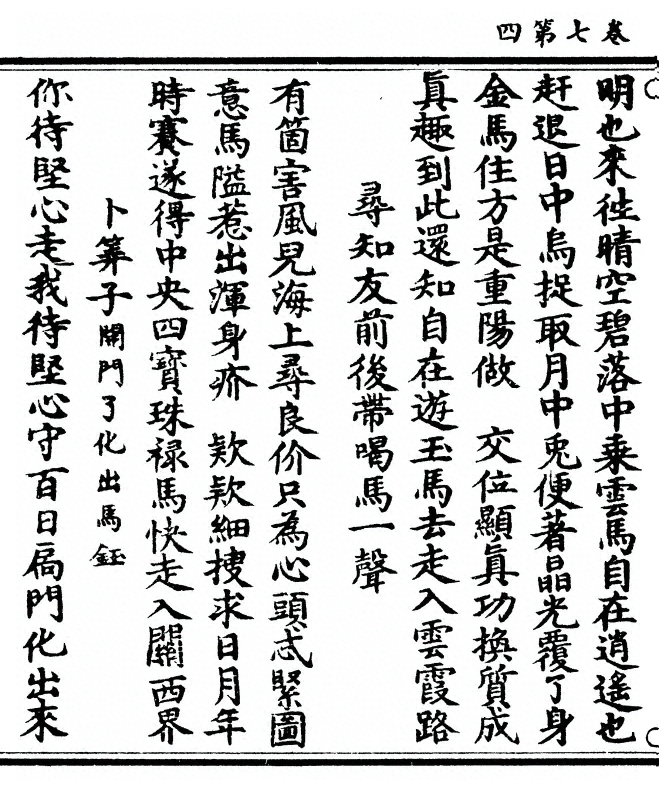 卷七第四
明也來往晴空碧落中乘雲馬自在逍遙也
赶退日中烏捉取月中兎便著晶光覆了身
金馬住方是重陽做　交位顯真功換質成
真趣到此還知自在遊玉馬去走入雲霞路
尋知友前後帶喝馬一聲
有箇害風兒海上尋良价只為心頭忒緊圖
意馬隘惹出渾身疥　欵欵細搜求日月年
時賽遂得中央四寶珠祿馬快走入關西界
卜筭子關門了化出馬鈺
你待堅心走我待堅心守百日扃門化出來